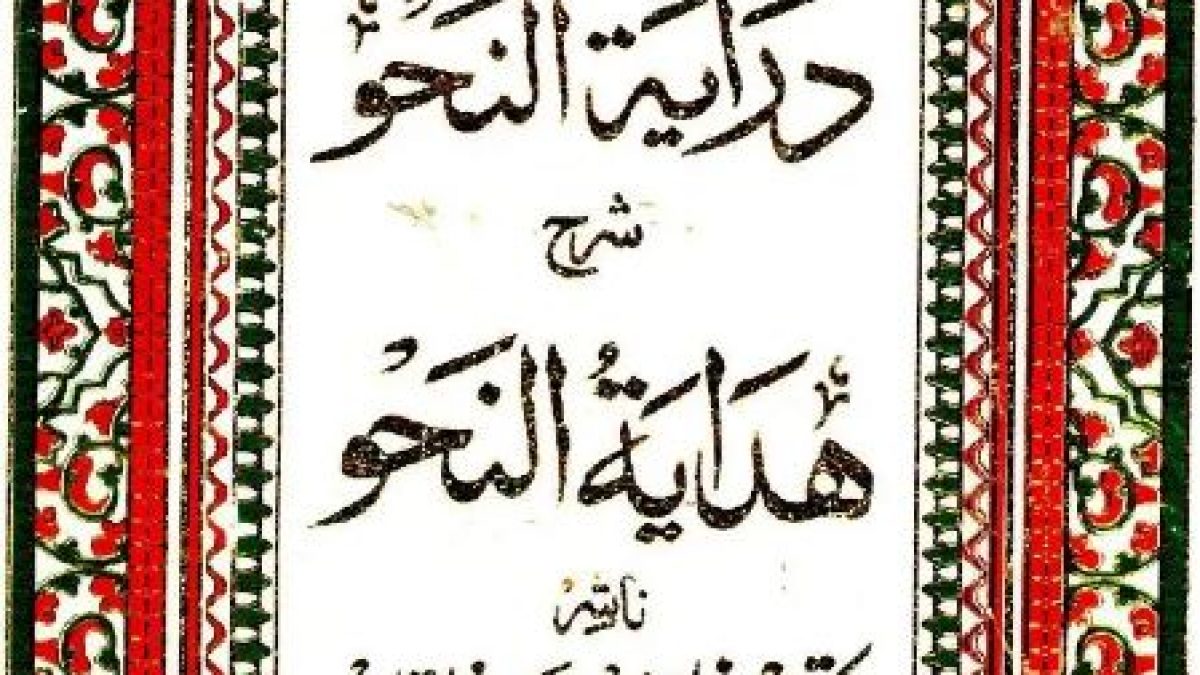 دراية النحو
شرح
هداية النحو
ناشر